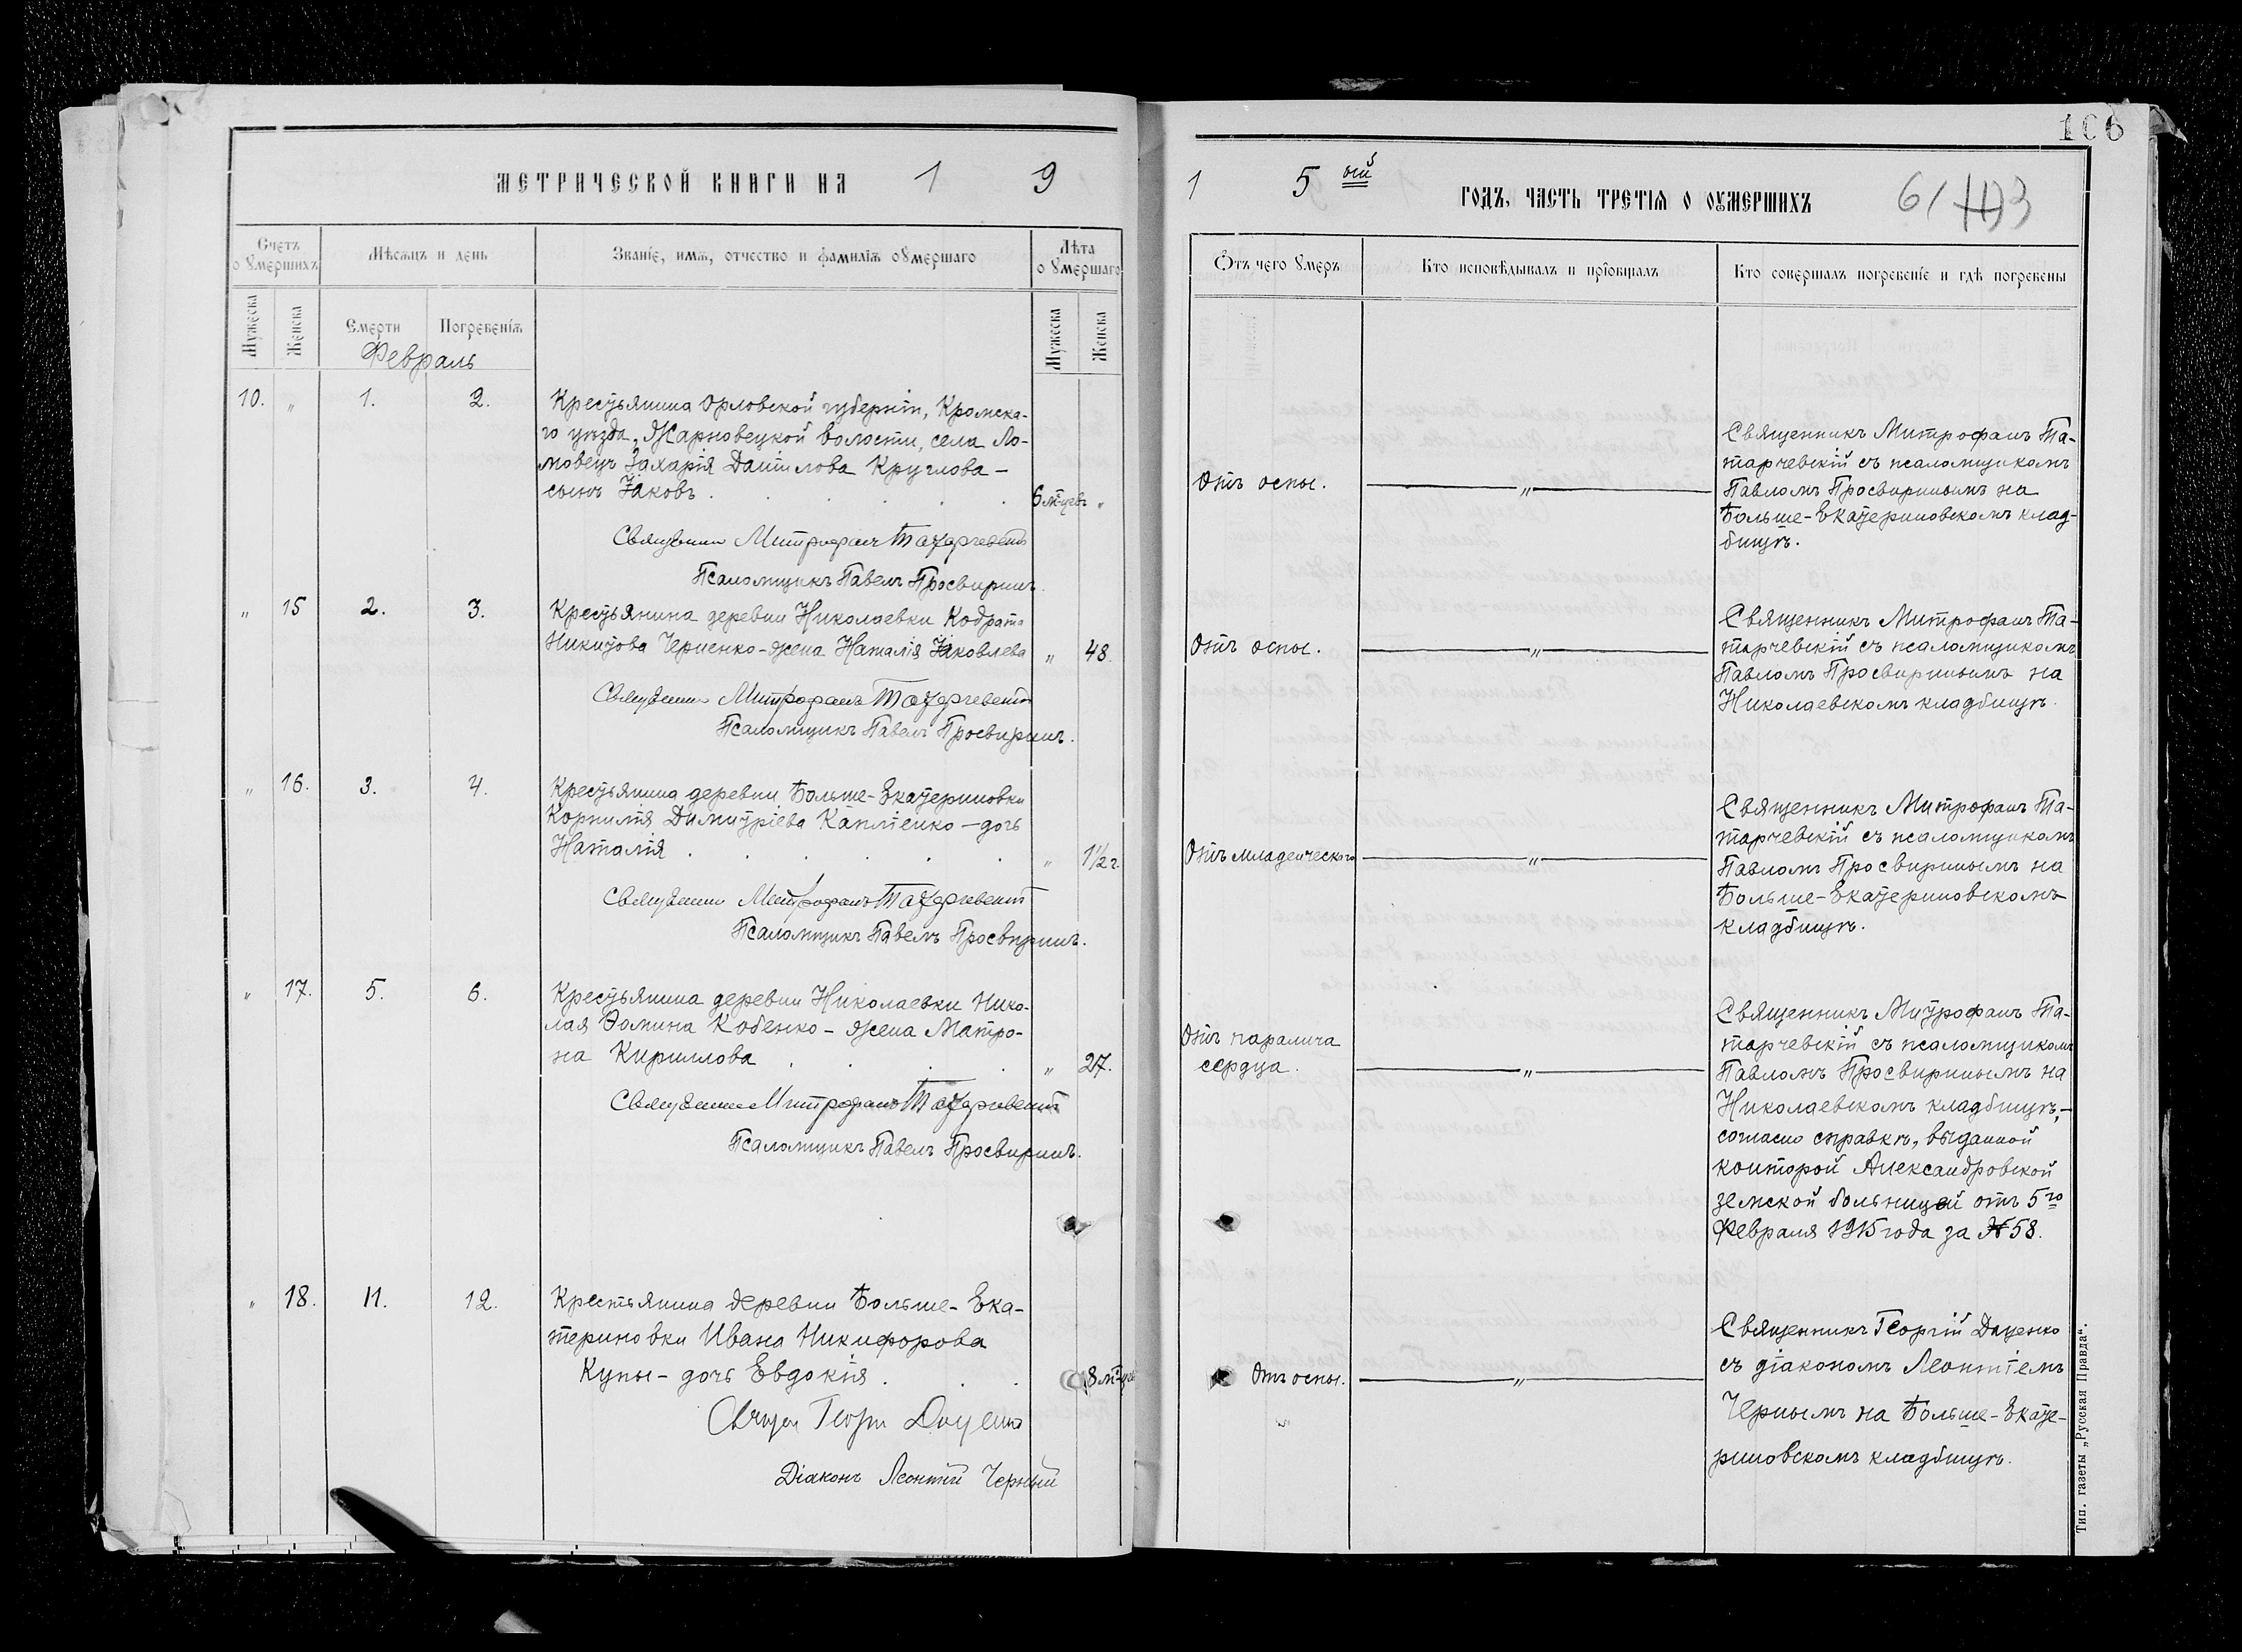 106
МЕТРИЧЕСКОЙ КНИГИ НА 1 9
1 5 ый ГОДЪ, ЧАСТЬ ТРЕТІѦ О ОУМЕРШИХЪ 61
Счетъ оумершихъ
Мѣсѧцъ и день
Званіе, имѧ, отчество и фамиліѧ оумершаго
Лѣта оумершаго
Ѿъ чего умеръ
Кто исповѣдывалъ и пріобщалъ
Кто совершалъ погребеніе и гдѣ погребены
Мужеска
Женска
Смерти
Погребеніѧ
Мужеска
Женска
Февраль
10. „ 1. 2.
Крестьянина Орловской губерніи, Кромска-
го уѣзда, Жарновецкой волости, села Ло-
мовец Захарія Данилова Круглова -
сынъ Іаковъ . . . . 6 м-цевъ „
Священникъ Митрофанъ Татарчевскій
Псаломщикъ Павелъ Просвиринъ.
Отъ оспы.
„
Священникъ Митрофанъ Та-
тарчевскій съ псаломщикомъ
Павломъ Просвиринымъ на
Больше-Екатериновскомъ клад-
бищѣ.
„ 15 2. 3.
Крестьянина деревни Николаевки Кодрата
Никитова Черненко-жена Наталія Іаковлева „ 48.
Священникъ Митрофанъ Татарчевскій
Псаломщикъ Павелъ Просвиринъ.
Отъ оспы.
„
Священникъ Митрофанъ Та-
тарчевскій съ псаломщикомъ
Павломъ Просвиринымъ на
Николаевскомъ кладбищѣ.
„ 16. 3. 4.
Крестьянина деревни Больше-Екатериновки
Корнилія Димитріева Каплієнко - дочь
Наталія . . . . . . „ 1½ г.
Священникъ Митрофанъ Татарчевскій
Псаломщикъ Павелъ Просвиринъ.
Отъ младенческаго
„
Священникъ Митрофанъ Та-
тарчевскій съ псаломщикомъ
Павломъ Просвиринымъ на
Больше-Екатериновскомъ
кладбищѣ.
„ 17. 5. 6.
Крестьянина деревни Николаевки Нико-
лая Фомина Кобенко - жена Матро-
на Кириллова . . . „ 27.
Священникъ Митрофанъ Татарчевскій
Псаломщикъ Павелъ Просвиринъ.
Отъ паралича
сердца.
„
Священникъ Митрофанъ Та-
тарчевскій съ псаломщикомъ
Павломъ Просвиринымъ на
Николаевскомъ кладбищѣ, -
согласно справкѣ, выданной
конторой Александровской
земской больницей отъ 5го
Февраля 1915 года за № 58.
„ 18. 11. 12.
Крестьянина деревни Больше-Ека-
териновки Ивана Никифорова
Купы - дочь Евдокія . . . 8 м-цев
Георгій Даценко
Діаконъ Леонтій Черный
Отъ оспы.
„
Священникъ Георгій Даценко
съ діакономъ Леонтіемъ
Чернымъ на Больше-Екате-
риновскомъ кладбищѣ.
Тип. газеты „Русская Правда“.